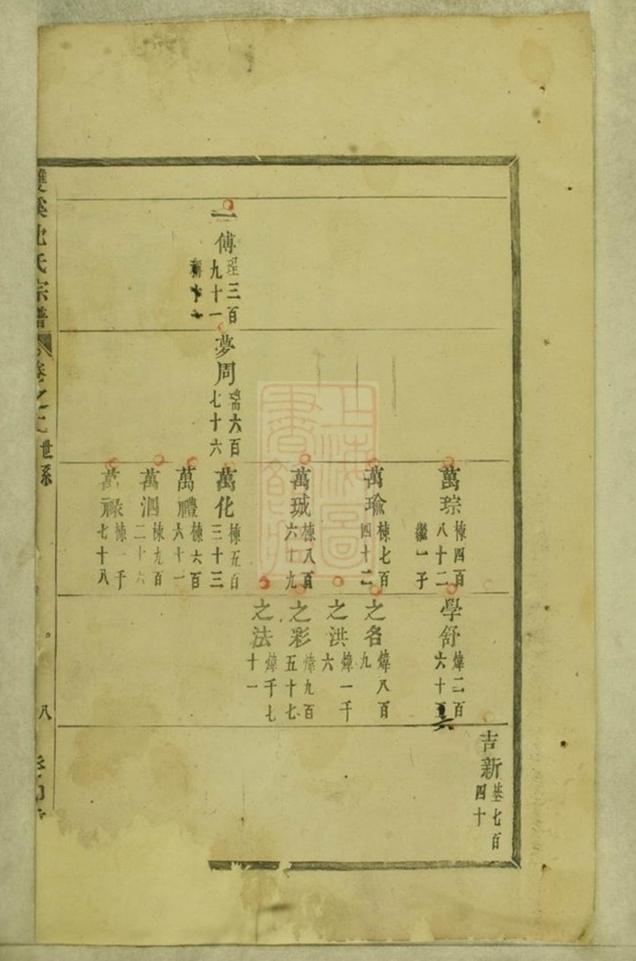 萬琮 棟四百八十二 繼一子
萬瑜 棟七百四十二
萬珹 棟八百六十九
一傅 理三百九十一
夢周 六百七十六
萬化 棟五百三十三
萬禮 棟六百六十一
萬泗 棟九百二十六
萬祿 棟一千七十八
學舒 煒二百六十
之名 煒八百九
之洪 煒一千六
之彩 煒九百五十七
之法 煒千七十一
吉新 基七百四十
雙溪沈氏宗譜 卷之 世系
八
上海圖書館藏